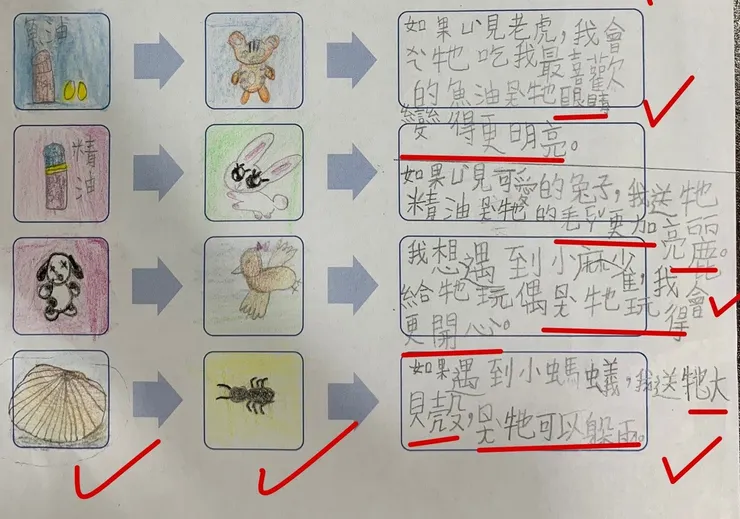 魚油
如果ㄩˋ見老虎,我會
ㄍㄟˇ牠吃我最喜歡
的魚油ㄖㄤˋ牠眼睛
變得更明亮。
精油
如果ㄩˋ見可愛的兔子,我送牠
精油ㄖㄤˋ牠的毛更加亮麗。
我想遇到小麻雀,我會
給牠玩偶ㄖㄤˋ牠玩得
更開心。
如果遇到小螞蟻,我送牠大
貝殼,ㄖㄤˋ牠可以躲雨。